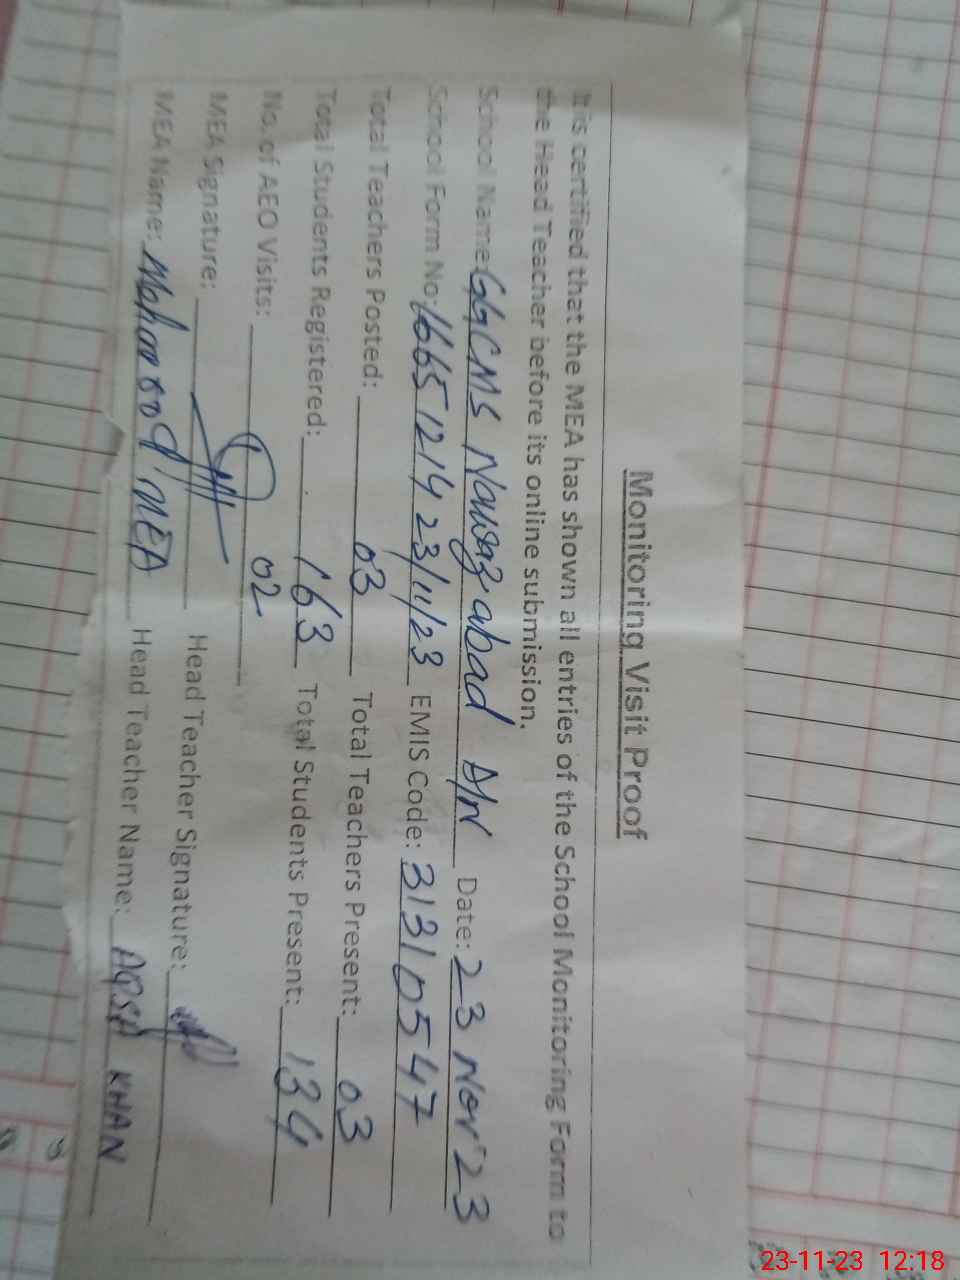 Monitoring Visit Proof
It is certified that the MEA has shown all entries of the School Monitoring Form to
the Head Teacher before its online submission.
School Name: GGCMS Nawaz abad D/N Date: 23 Nov 23
School Form No: 16651214 23/11/23 EMIS Code: 31310547
Total Teachers Posted: 03 Total Teachers Present: 03
Total Students Registered: 163 Total Students Present: 134
No. of AEO Visits: 02
MEA Signature: Head Teacher Signature:
MEA Name: Mahmood MEA Head Teacher Name: AQSA KHAN
23-11-23 12:18